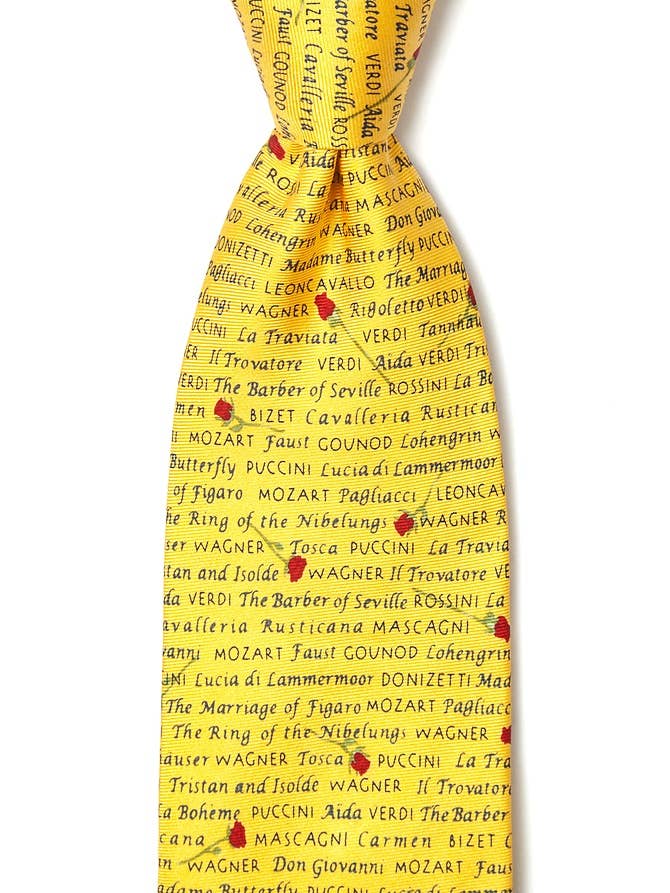 PUCCINI
Faust GOUNOD
BIZET Cavalleria
Barber of Seville ROSS
vatore VERDI Aida
Traviata VERDI
WAGNER
Aida Tristan
ROS La PUCCIN
valleria Rus MASCAGNI
OD Lohengrin WAGNER Don Giova
DONIZETTI Madame Butterfly PUCCIN
Pagliacci LEONCAVALLO The Marriag
elungs WAGNER Rigoletto VERDI
UCCINI La Traviata VERDI Tannhäu
ER Il Trovatore VERDI Aida VERDI Tri
ERDI The Barber of Seville ROSSINI La Bo
men BIZET Cavalleria Rustican
I MOZART Faust GOUNOD Lohengrin W
Butterfly PUCCINI Lucia di Lammermoor
of Figaro MOZART Pagliacci LEONCAV
he Ring of the Nibelungs WAGNER R
ser WAGNER Tosca PUCCINI La Travia
tan and Isolde WAGNER Il Trovatore VE
da VERDI The Barber of Seville ROSSINI La
avalleria Rusticana MASCAGNI
vanni MOZART Faust GOUNOD Lohengrin
INI Lucia di Lammermoor DONIZETTI Mad
The Marriage of Figaro MOZART Pagliacc
The Ring of the Nibelungs WAGNER
häuser WAGNER Tosca PUCCINI La Tra
Tristan and Isolde WAGNER Il Trovator
a Bohème PUCCINI Aïda VERDI The Barber
cana MASCAGNI Carmen BIZET C
in WAGNER Don Giovanni MOZART Faus
adame Butterfly PUCCINI